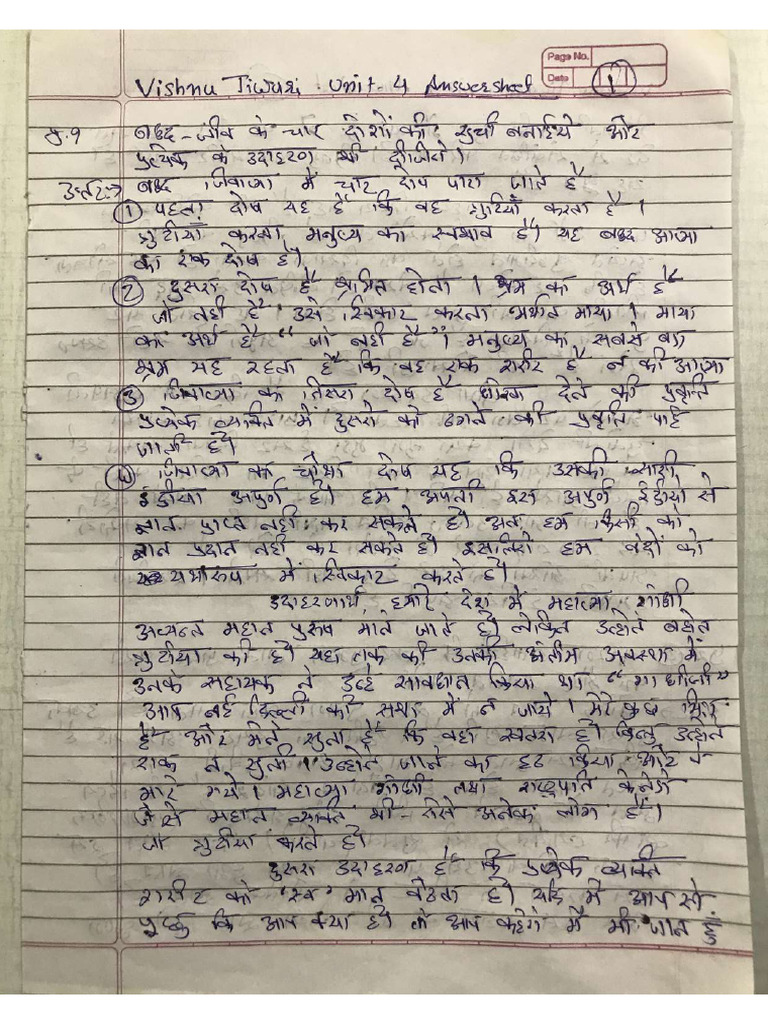 Page No.
Date
1
Vishnu Tiwari Unit-4 Answersheet
प्र.१ बद्ध-जीव के चार दोशों की सुची बनाईये और
प्रत्येक के उदाहरण भी दीजिये।
उत्तर:→ बद्ध जिवात्मा में चार दोष पाए जाते है
① पहला दोष यह है कि वह त्रुटियाँ करता है।
त्रुटीयाँ करना मनुष्य का स्वभाव है। यह बद्ध आत्मा
का एक दोष है।
② दुसरा दोष है भ्रमित होना। भ्रम का अर्थ है
जो नही है उसे स्विकार करना अर्थात माया। माया
का अर्थ है "जो नही है"। मनुष्य का सबसे बडा
भ्रम यह रहता है कि वह एक शरीर है न की आत्मा
③ जिवात्मा का तिसरा दोष है धोखा देने की प्रवृत्ति
प्रत्येक व्यक्ति में दुसरो को ठगने की प्रवृति पाई
जाती है।
④ जिवात्मा का चौथा दोष यह कि उसकी सारी
इंद्रीया अपुर्ण है। हम अपनी इस अपुर्ण इंद्रीयो से
ज्ञान प्राप्त नही कर सकते है। अतः हम किसी को
ज्ञान प्रदान नही कर सकते है। इसलिये हम वेदों को
यथारूप में स्विकार करते है।
उदाहरणार्थ, हमारे देश में महात्मा गांधी
अत्यन्त महान पुरूष माने जाते है। लेकिन उन्होने बहोत
त्रुटीया की है। यहा तक की उनकी अंतीम अवस्था में
उनके सहायक ने उन्हे सावधान किया था "गांधीजी"
आप नई दिल्ली की सभा में न जाये। मेरे कुछ मित्र
है और मैने सुना है कि वहा खतरा है। किन्तु उन्होने
एक न सुनी। उन्होने जाने का हट किया और वे
मारे गये। महात्मा गांधी तथा राष्ट्रपति केनेडी
जैसे महान व्यक्ति भी - ऐसे अनेक लोग है।
जो त्रुटीया करते है।
दुसरा उदाहरण है कि प्रत्येक व्यक्ति
शरीर को 'स्व' मान बैठता है। यदि मैं आप से
पूछू कि आप क्या है। तो आप कहेंगे मैं मी. जान हूँ